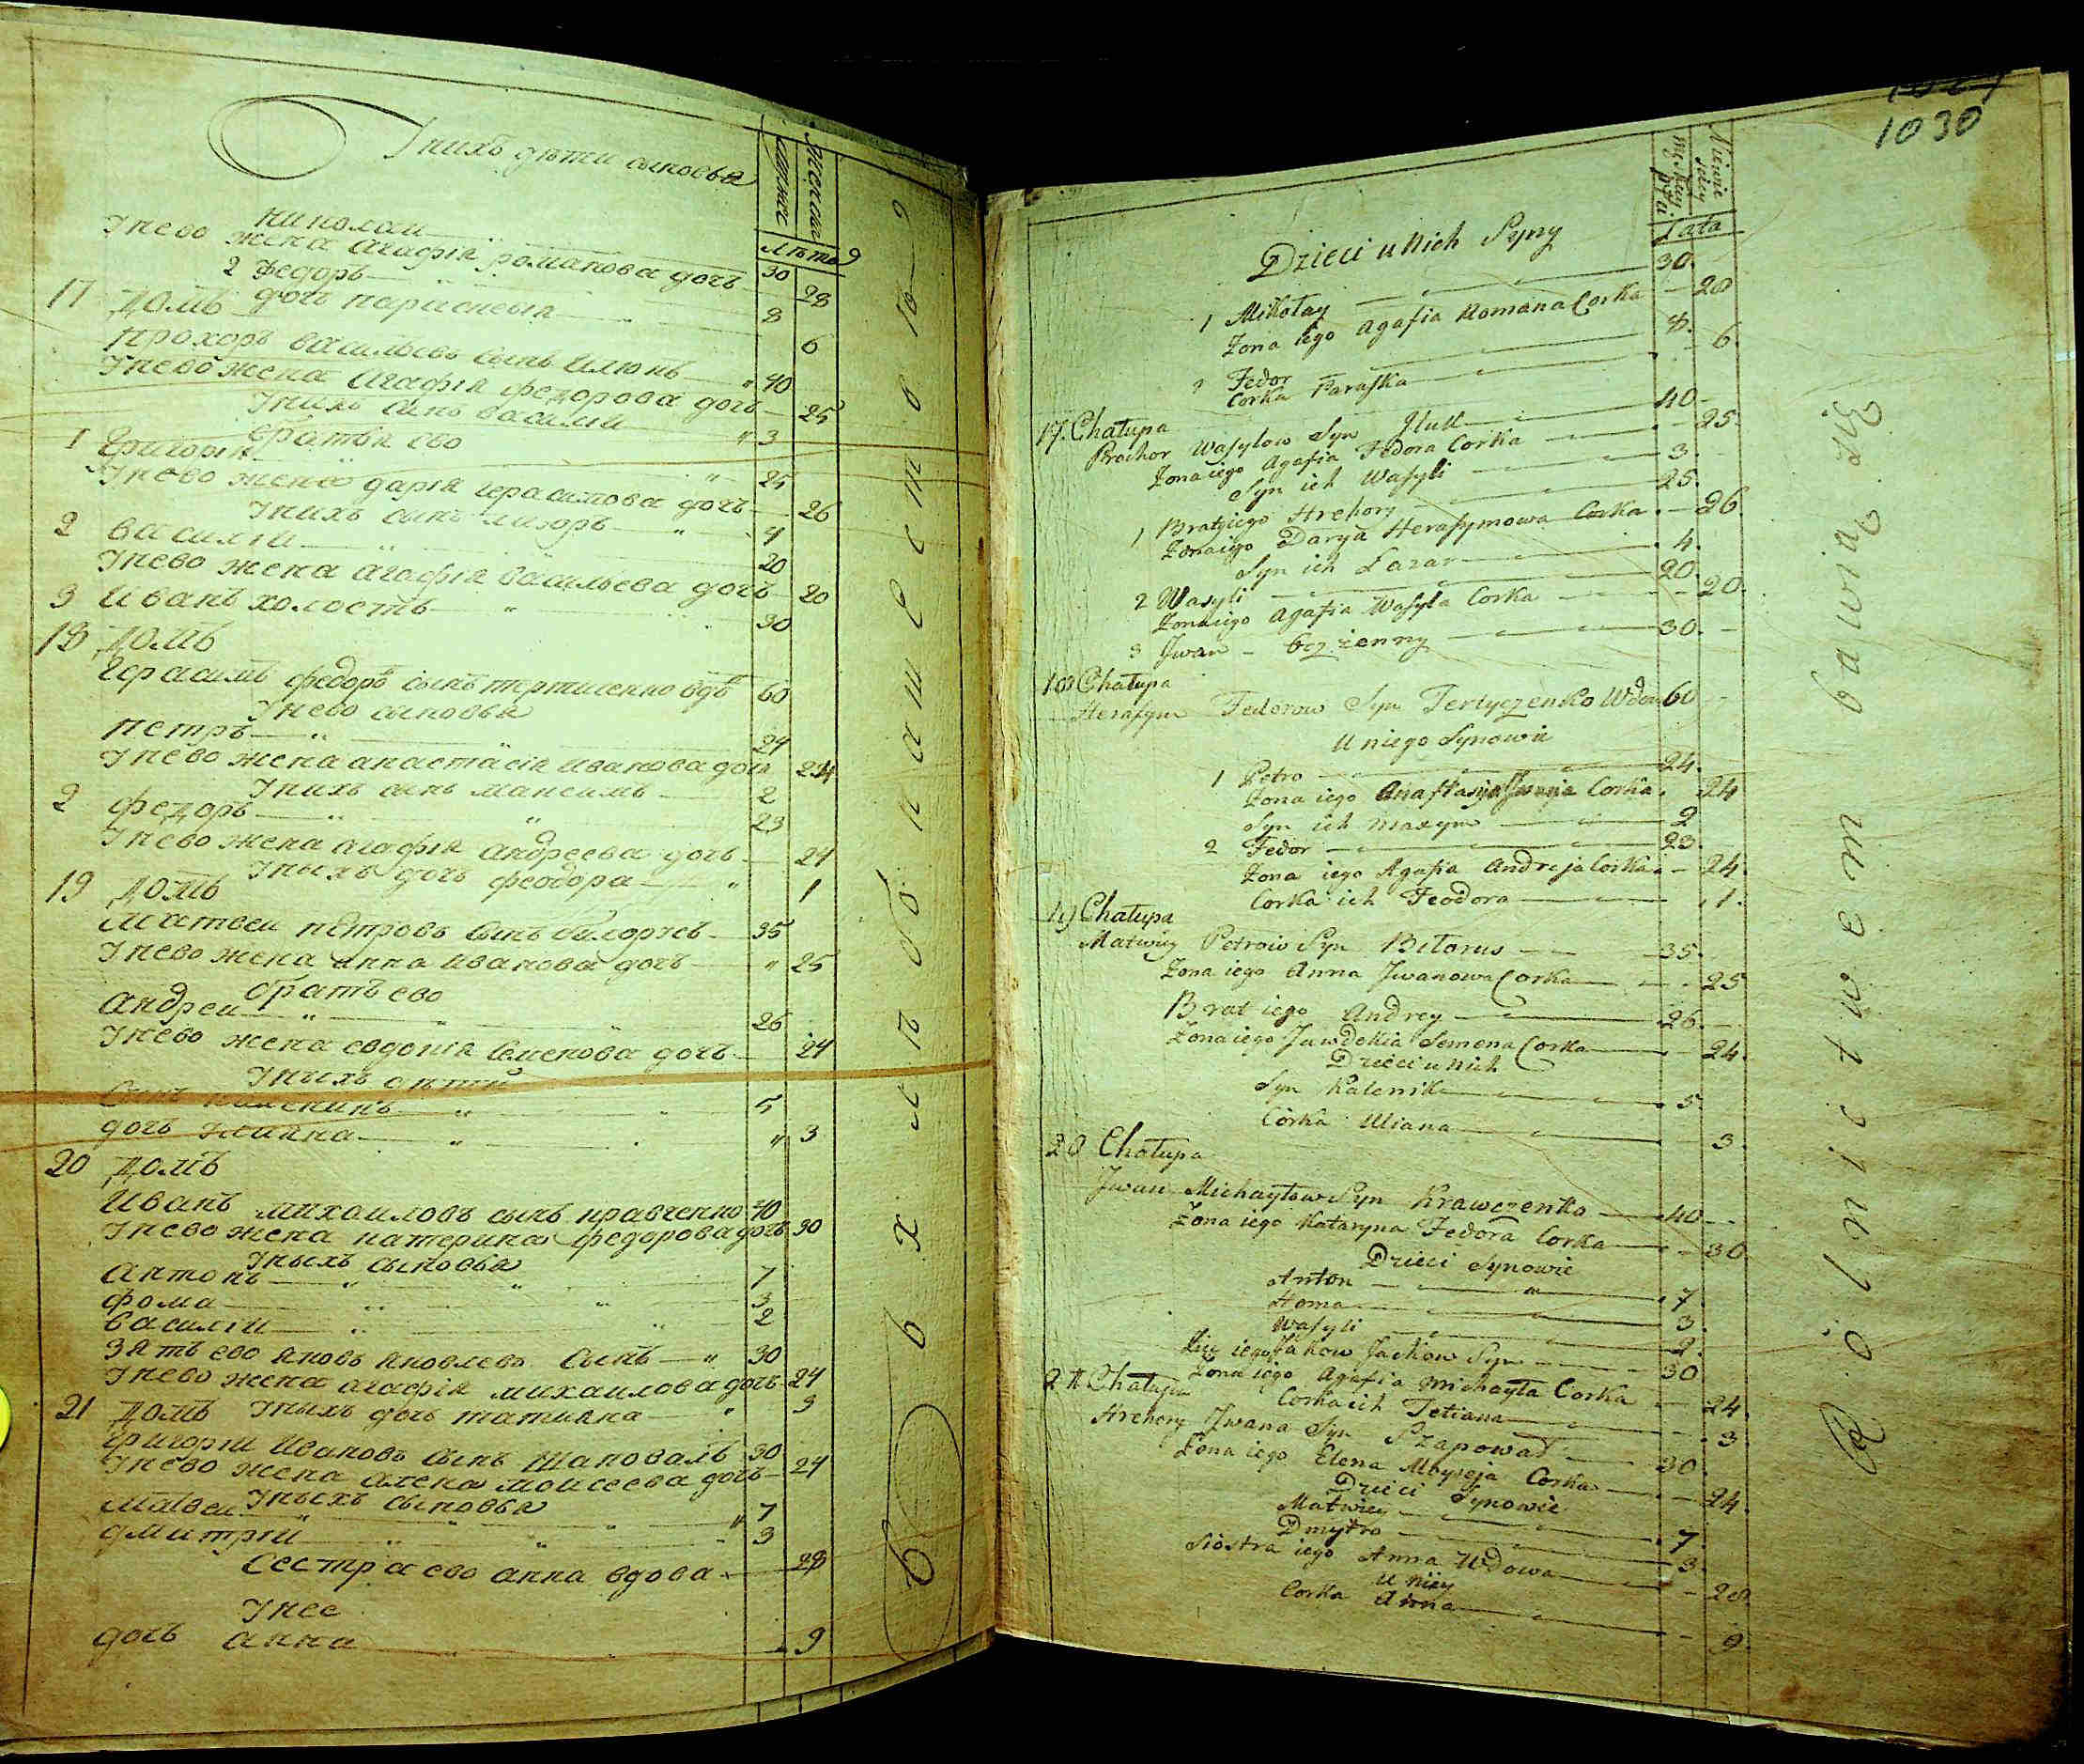 У нихъ дѣти сыновья
мужес
женска
лѣта
николаи 30
У нево жена агафія романова дочъ 28
2 федоръ 8
дочъ парасковія 6
17 домъ
прохоръ васильевъ сынъ 40
У нево жена агафія федорова дочъ 25
У нихъ сынъ василій 3
братья ево
1 григорій 25
У нево жена дарія герасимова дочъ 26
У нихъ сынъ лазоръ 4
2 василій 20
У нево жена агафія васильева дочъ 20
3 иванъ холостъ 30
18 домъ
герасимъ федоръ сынъ тертиченко вдъ 60
У нево сыновья
петръ 24
У нево жена анастасія иванова дочъ 24
У нихъ сынъ максимъ 2
2 федоръ 23
У нево жена агафія андреева дочъ 24
У ныхъ дочъ феодора 1
19 домъ
матвеи петровъ сынъ 35
У нево жена анна иванова дочъ 25
братъ ево
андреи 26
У нево жена евдокія семенова дочъ 24
У ныхъ дѣти
сынъ 5
дочъ улиана 3
20 домъ
иванъ михаиловъ сынъ кравченко 40
У нево жена катерина федорова дочъ 30
У ныхъ сыновья
антонъ 7
фома 3
василіи 2
зять ево яковъ яковлевъ сынъ 30
У нево жена агафія михаилова дочъ 24
У ныхъ дочъ татиана 3
21 домъ
григоріи ивановъ сынъ шаповалъ 30
У нево жена алена моисеева дочъ 24
У ныхъ сыновья
матвеи 7
дмитріи 3
сестра ево анна вдова 28
У нее
дочъ анна 9
1030
Męskiey płci
Niewieściey
Lata
Dzieci u Nich Syny
1 Mikołay 30
Zona iego Agafia Romana Corka 28
2 Fedor 8
Corka Paraska 6
17 Chałupa
Prochor Wasylow Syn 40
Zona iego Agafia Fedora Corka 25
Syn ich Wasyli 3
1 Brat iego Hrehory 25
Zona iego Darya Herasymowa Corka 26
Syn ich Łazar 4
2 Wasyli 20
Zona iego Agafia Wasyla Corka 20
3 Jwan - bezżenny 30
18 Chałupa
Herasym Fedorow Syn Tertyczenko Wdow 60
U niego Synowie
1 Petro 24
Zona iego Anastasyja Corka 24
Syn ich Maxym 2
2 Fedor 23
Zona iego Agafia Andreja Corka 24
Corka ich Feodora 1
19 Chałupa
Matwiey Petrow Syn Biłorus 35
Zona iego Anna Jwanowa Corka 25
Brat iego Andrey 26
Zona iego Jawdokia Semena Corka 24
Dzieci u Nich
Syn Kalenik 5
Corka Uliana 3
20 Chałupa
Jwan Michayłow Syn Krawczenko 40
Zona iego Kataryna Fedora Corka 30
Dzieci Synowie
Anton 7
Homa 3
Wasyli 2
Zięć iego Jakow Jackow Syn 30
Zona iego Agafia Michayła Corka 24
Corka ich Tetiana 3
21 Chałupa
Hrehory Jwana Syn Szapował 30
Zona iego Elena Moyseja Corka 24
Dzieci Synowie
Matwiey 7
Dmytro 3
Siostra iego Anna Wdowa 28
U Niey
Corka Anna 9
Rolnictwem bawią się